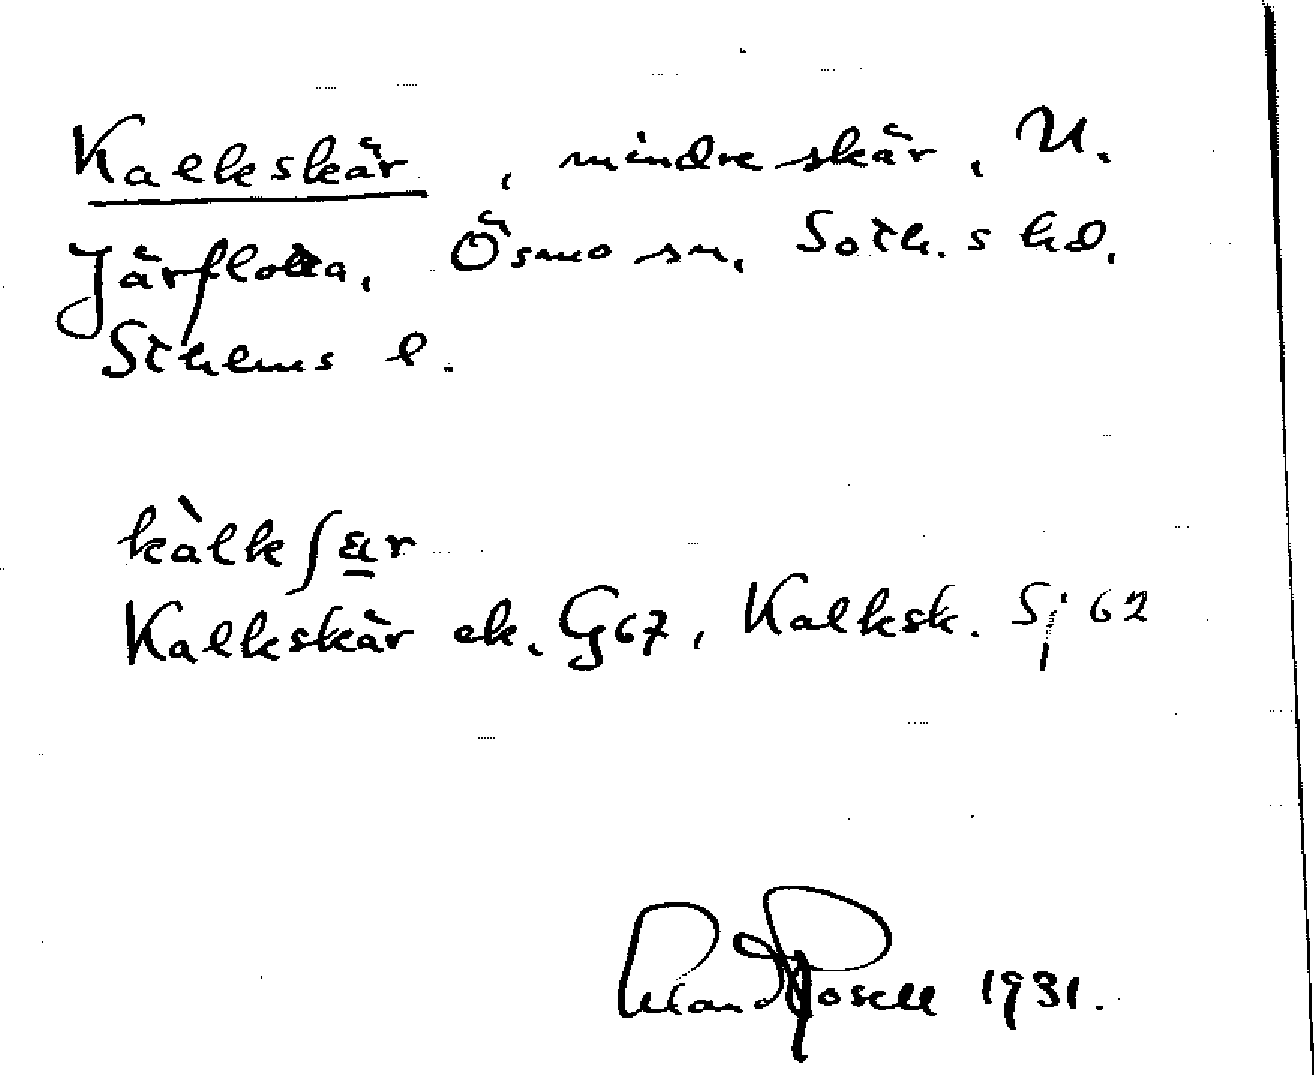 Kalkskär, mindre skär, U.
Järflotta, Ösmo sn, Soth.s hd,
Sthlms l.
kàlkʃæ̲r
Kalkskär ek. G67, Kalksk. Sj 62
Rosell 1931.